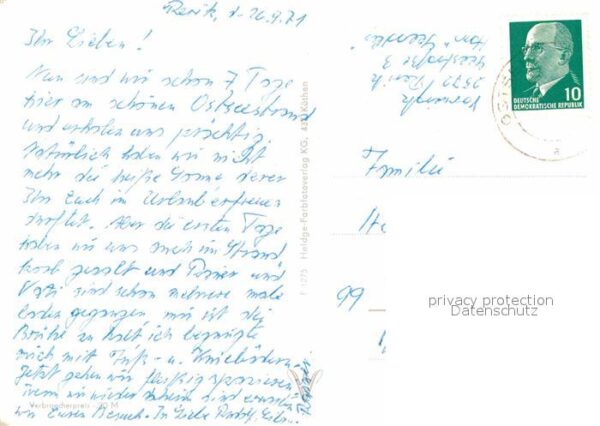 Rerik, d. 26.9.71
Ihr Lieben!
Nun sind wir schon 7 Tage
hier am schönen Ostseestrand
und erholen uns prächtig
Natürlich haben wir nicht
mehr die heiße Sonne deren
Ihr Euch im Urlaub erfreuen
durftet. Aber die ersten Tage
haben wir uns noch im Strand
korb gesalt und und
Vati sind schon mehrere male
baden gegangen, mir ist die
Brühe zu kalt ich begnügte
mich mit Fuß- u. Kniebädern.
Jetzt gehen wir fleißig spazieren
wenn wir wieder daheim sind erwarten
wir Euren Besuch. In Liebe Rudolf,
Verbraucherpreis -,20 M
F 1273 Heldge-Farbfotoverlag KG, 437 Köthen
Rerik
Seestraße 3
Familie
99
DEUTSCHE
DEMOKRATISCHE REPUBLIK
10
privacy protection
Datenschutz